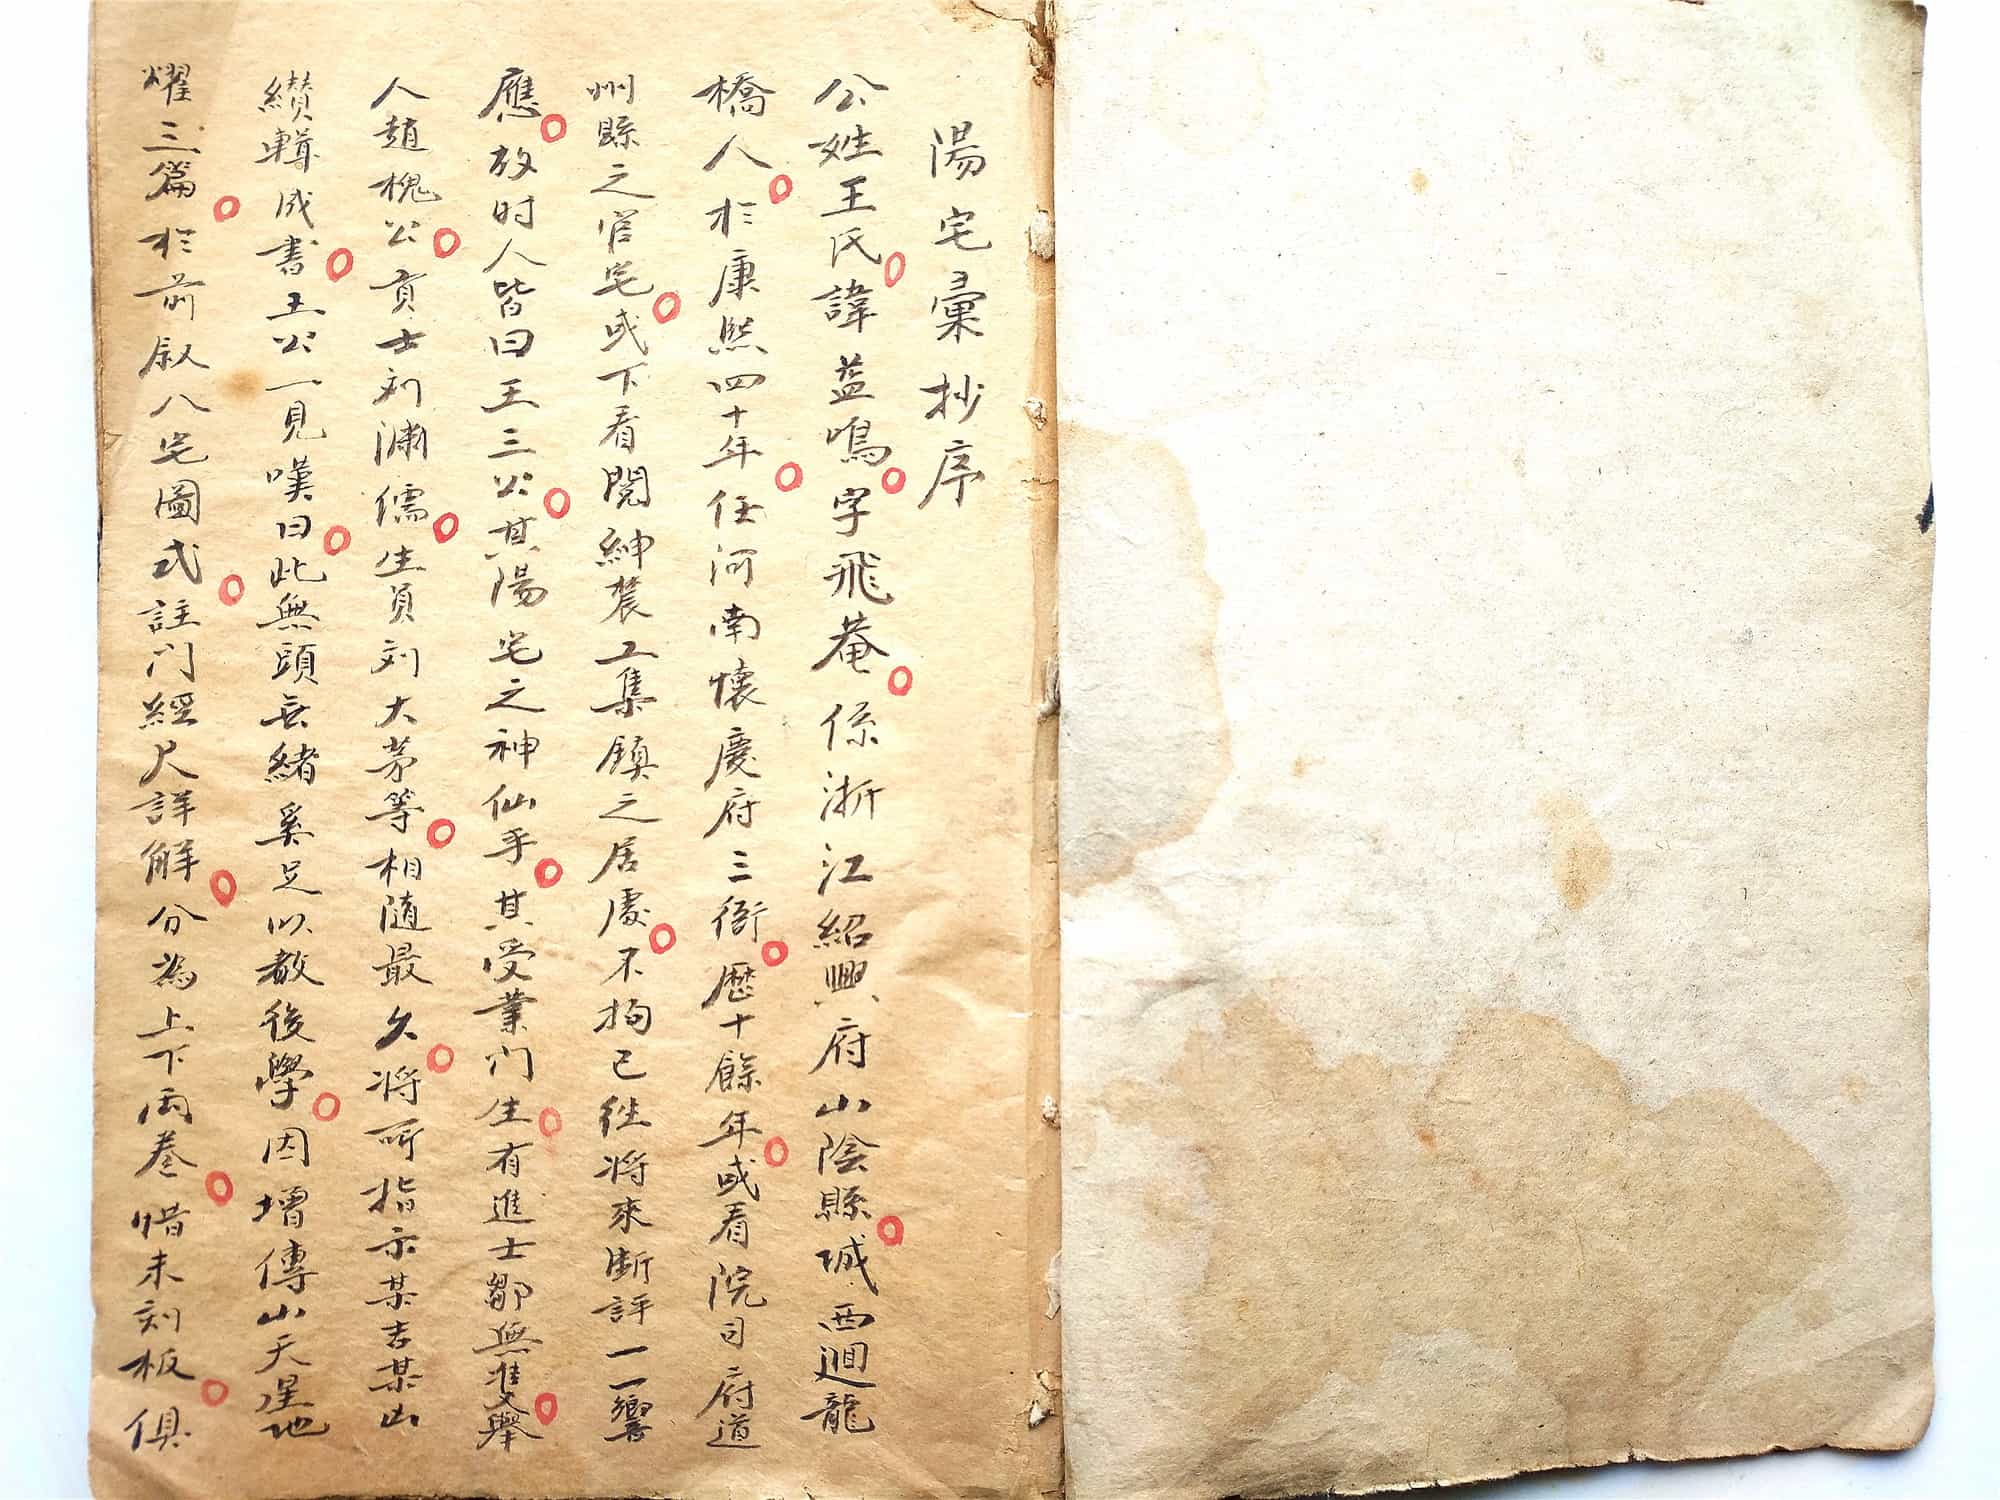 陽宅彙抄序
公姓王氏諱益鳴字飛菴係浙江紹興府山陰縣城西迴龍
橋人於康熙四十年任河南懷慶府三衙歷十餘年或看院司府道
州縣之官宅或下看閱紳農工集鎮之居處不拘已徃將來断評一一響
應故时人皆曰王三公其陽宅之神仙乎其受業门生有進士鄒無雙舉
人趙槐公貢士刘溯儒生員刘大茅等相隨最久将所指示某吉某凶
纘輯成書王公一見嘆曰此無頭无緒奚足以教後學因增傳山天星地
耀三篇於前叙八宅圖式註门經尺詳解分為上下两卷惜未刻板俱